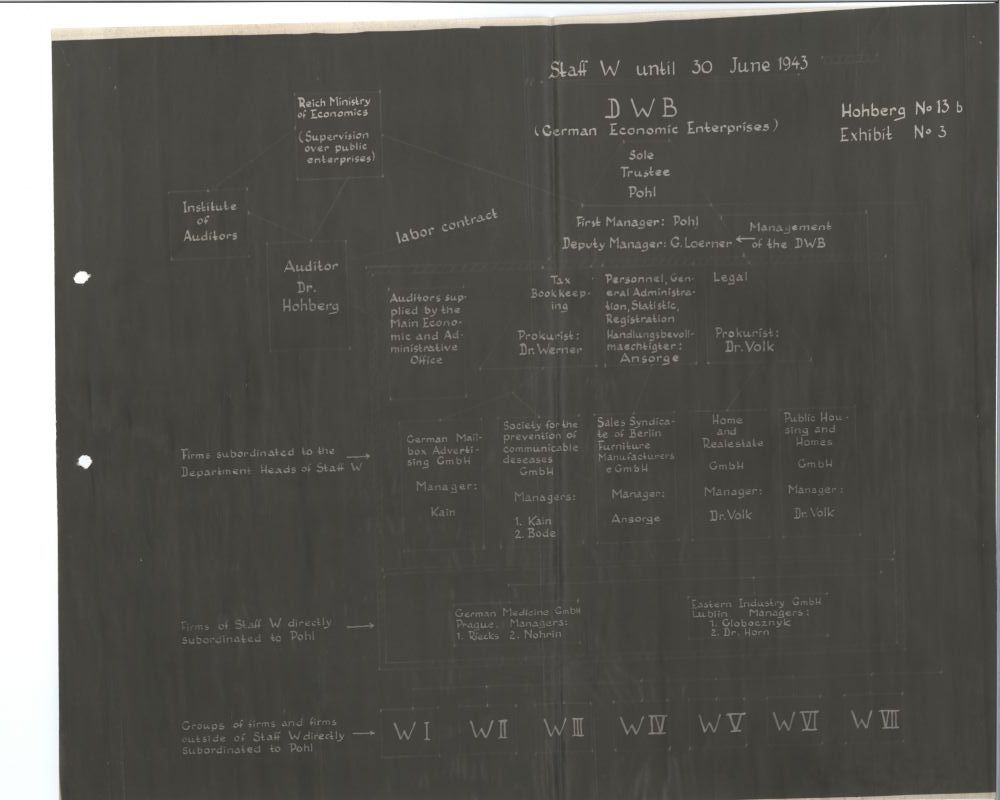 Staff W until 30 June 1943
Hohberg No 13 b
Exhibit No 3
DWB
(German Economic Enterprises)
Sole
Trustee
Pohl
Reich Ministry
of Economics
(Supervision
over public
enterprises)
Institute
of
Auditors
Auditor
Dr.
Hohberg
labor contract
First Manager: Pohl
Deputy Manager: G. Loerner
Management
of the DWB
Auditors sup-
plied by the
Main Econo-
mic and Ad-
ministrative
Office
Tax
Bookkeep-
ing
Prokurist:
Dr. Werner
Personnel, Gen-
eral Administra-
tion, Statistic,
Registration
Handlungsbevoll-
maechtigter:
Ansorge
Legal
Prokurist:
Dr. Volk
Firms subordinated to the
Department Heads of Staff W
German Mail-
box Adverti-
sing GmbH
Manager:
Kain
Society for the
prevention of
communicable
deseases
GmbH
Managers:
1. Kain
2. Bode
Sales Syndica-
te of Berlin
Furniture
Manufacturers
e GmbH
Manager:
Ansorge
Home
and
Realestate
GmbH
Manager:
Dr. Volk
Public Hou-
sing and
Homes
GmbH
Manager:
Dr. Volk
Firms of Staff W directly
subordinated to Pohl
German Medicine GmbH
Prague. Managers:
1. Riecks 2. Nohrin
Eastern Industry GmbH
Lublin Managers:
1. Globocznyk
2. Dr. Horn
Groups of firms and firms
outside of Staff W directly
subordinated to Pohl
W I
W II
W III
W IV
W V
W VI
W VII